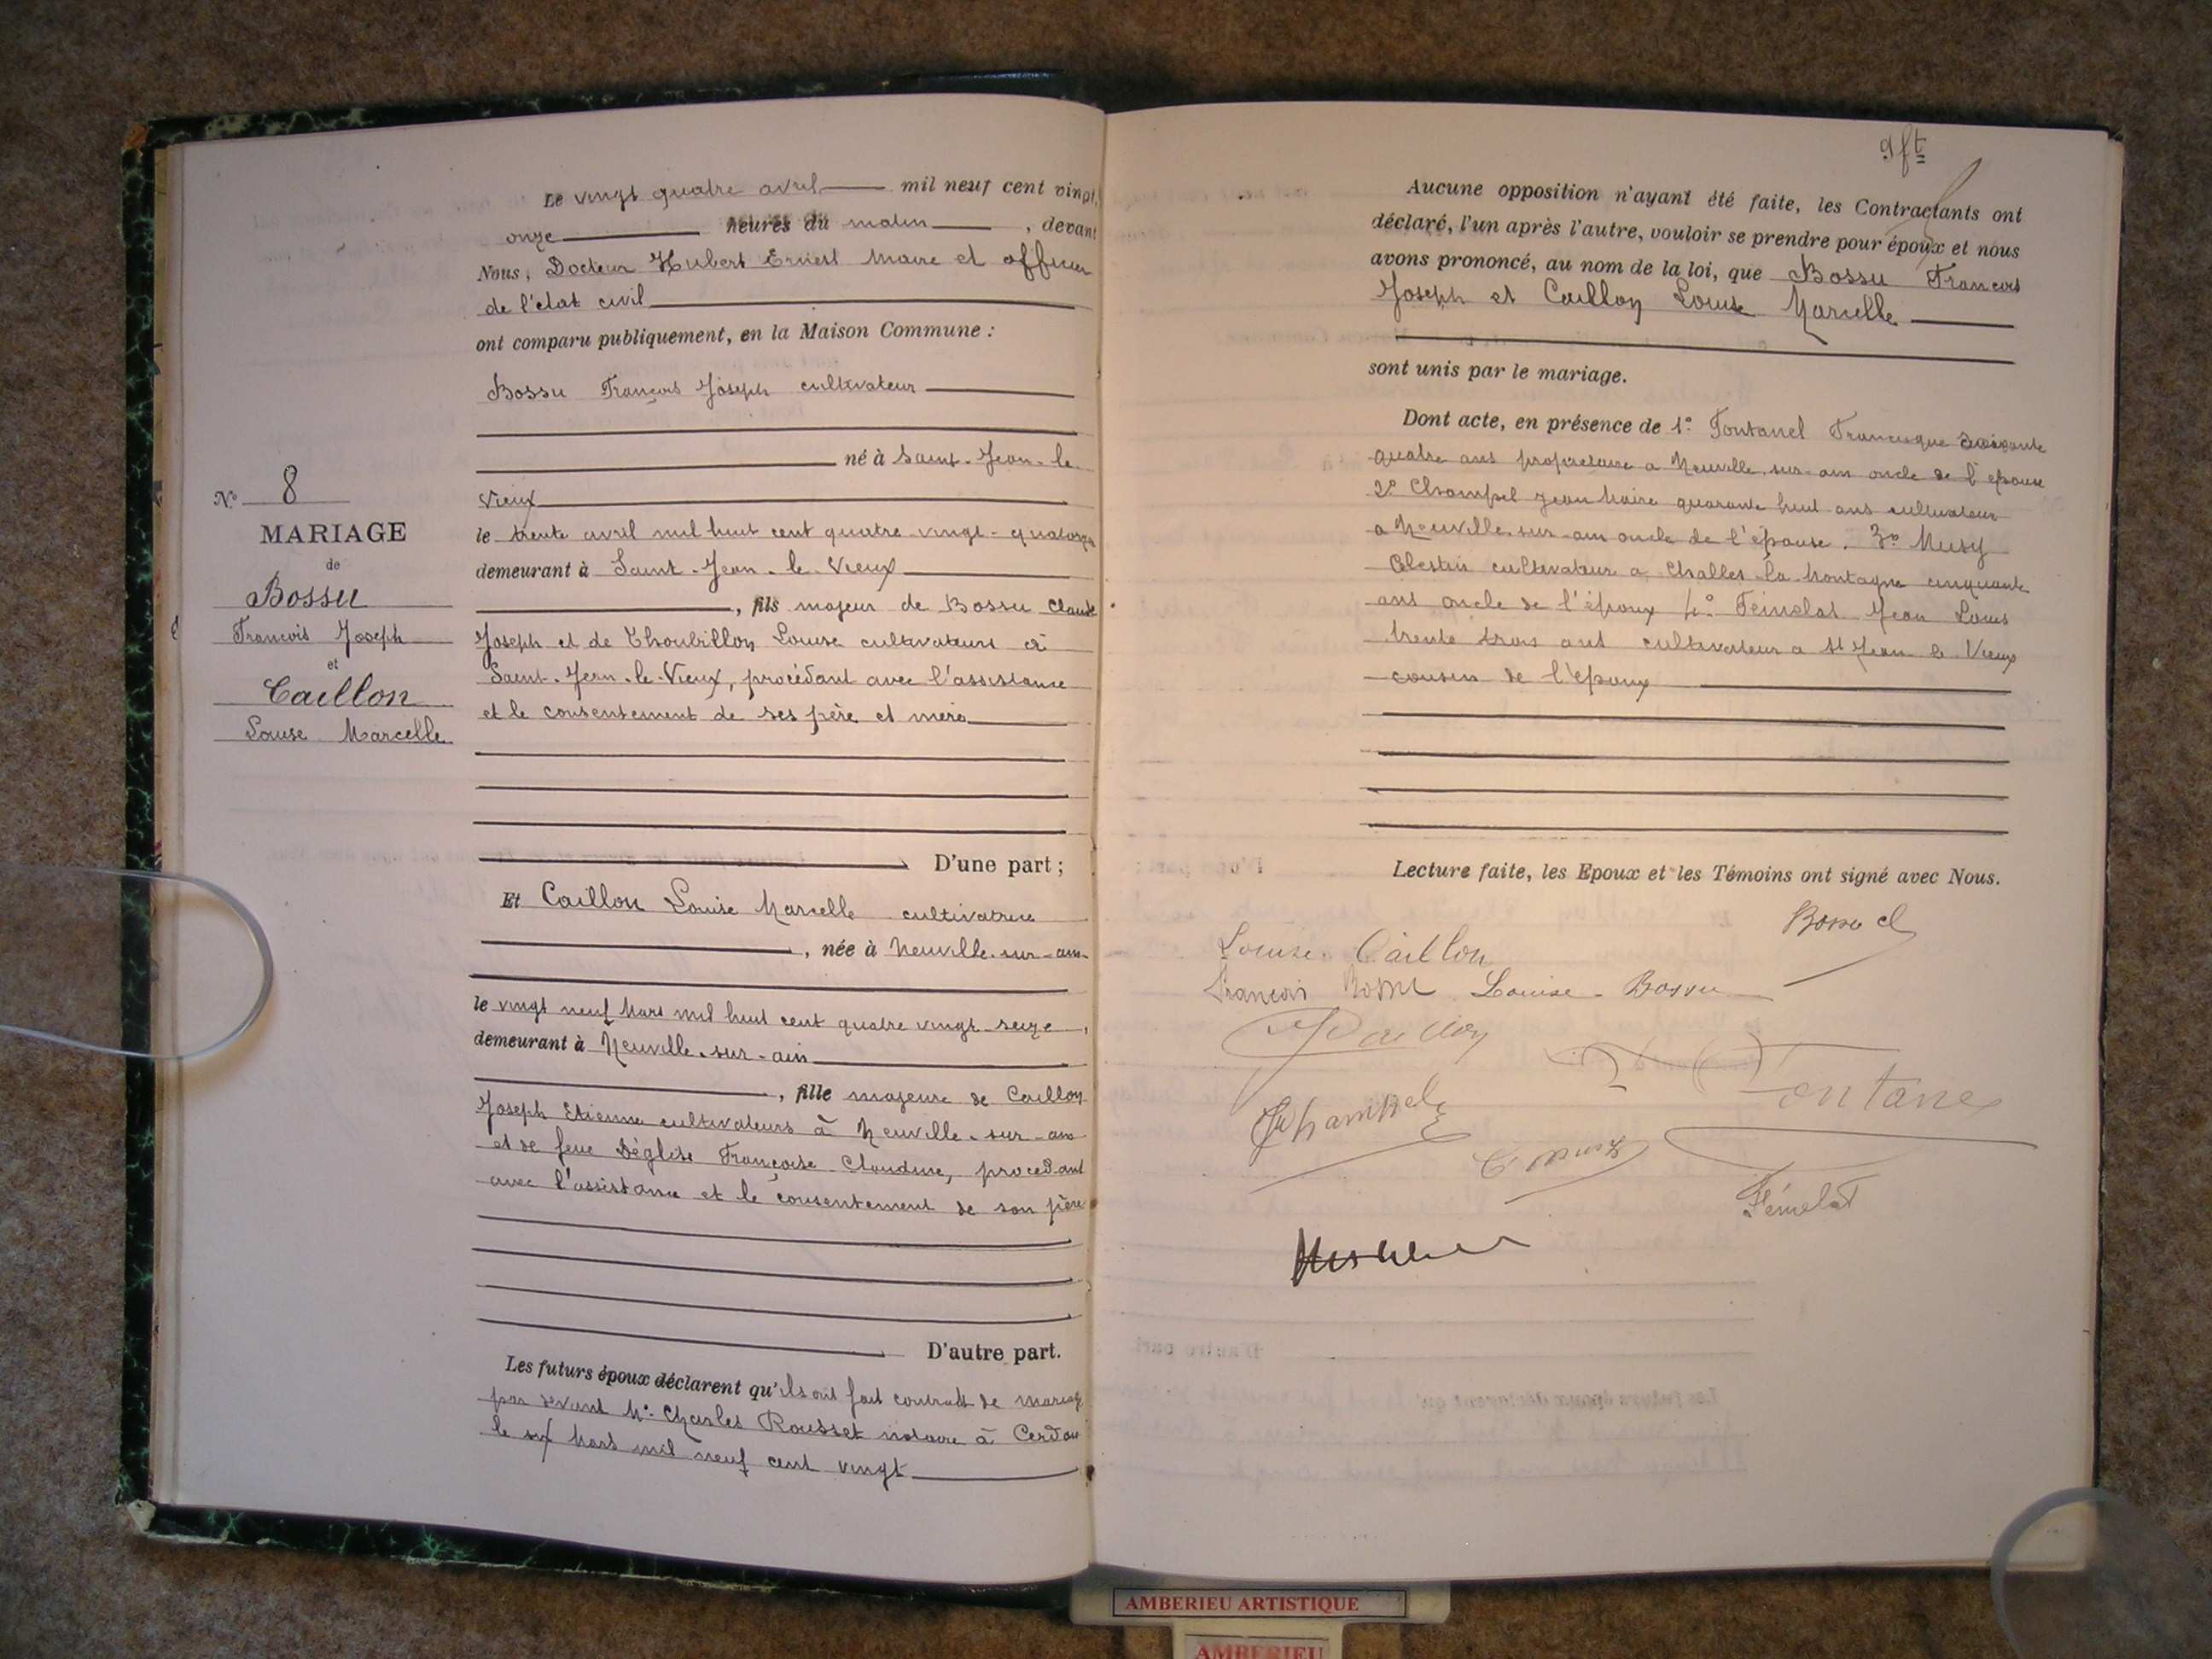 N° 8
MARIAGE
de
Bossu
François Joseph
et
Caillon
Louise Marcelle
Le vingt quatre avril mil neuf cent vingt,
onze heures du matin, devant
Nous, Docteur Hubert Ernest Maire et officier
de l'état civil
ont comparu publiquement, en la Maison Commune :
Bossu François Joseph cultivateur
né à Saint-Jean-le-
Vieux
le trente avril mil huit cent quatre vingt-quatorze
demeurant à Saint-Jean-le-Vieux
, fils majeur de Bossu Claude
Joseph et de Thoubillon Louise cultivateurs à
Saint-Jean-le-Vieux, procédant avec l'assistance
et le consentement de ses père et mère
D'une part ;
Et Caillon Louise Marcelle cultivatrice
, née à Neuville-sur-ain
le vingt neuf Mars mil huit cent quatre vingt-seize,
demeurant à Neuville-sur-ain
, fille majeure de Caillon
Joseph Etienne cultivateurs à Neuville-sur-ain
et de feue Déglise Françoise Claudine, procédant
avec l'assistance et le consentement de son père
D'autre part.
Les futurs époux déclarent qu'ils ont fait contrat de mariage
par devant Me Charles Rousset notaire à Cerdon
le six Mars mil neuf cent vingt
9 ft
Aucune opposition n'ayant été faite, les Contractants ont
déclaré, l'un après l'autre, vouloir se prendre pour époux et nous
avons prononcé, au nom de la loi, que Bossu François
Joseph et Caillon Louise Marcelle
sont unis par le mariage.
Dont acte, en présence de 1° Fontanel Francisque soixante
quatre ans propriétaire a Neuville-sur-ain oncle de l'épouse
2° Champel Jean Marie quarante huit ans cultivateur
a Neuville-sur-ain oncle de l'épouse. 3° Musy
Célestin cultivateur a Challes-la-Montagne cinquante
ans oncle de l'époux 4° Femelat Jean Louis
trente trois ans cultivateur a St Jean le Vieux
cousin de l'époux
Lecture faite, les Epoux et les Témoins ont signé avec Nous.
Bossu cl
Louise Caillon
François Bossu Louise Bossu
Caillon
Fontanel
Champel
C Musy
Fémelat
AMBERIEU ARTISTIQUE
AMBERIEU